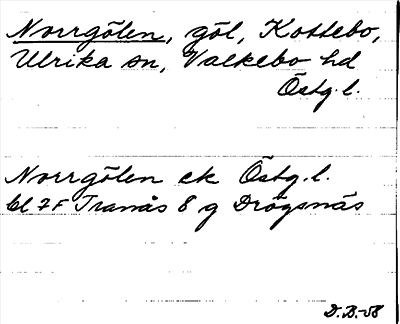 Norrgölen, göl, Kottebo,
Ulrika sn, Valkebo hd
Östg. l.
Norrgölen ek Östg. l.
bl 7F Tranås 8 g Drögsnäs
D.B.-58